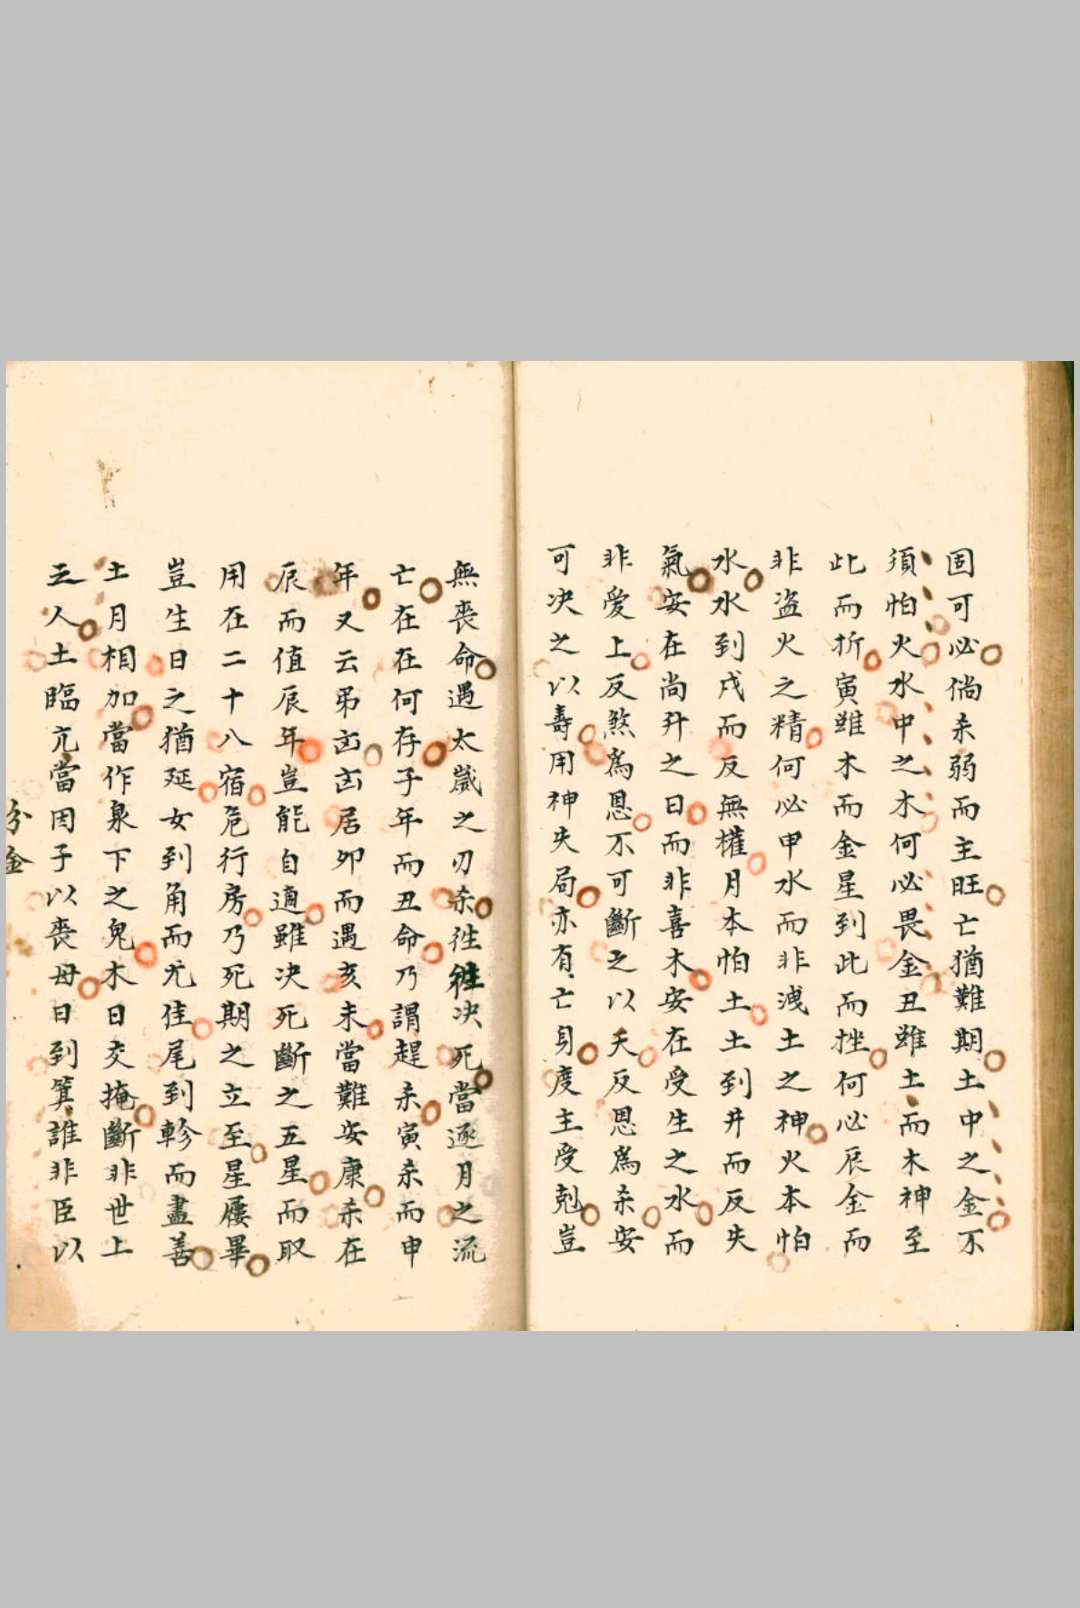 固可必倘杀弱而主旺亡猶難期土中之金不
須怕火水中之木何必畏金丑雖土而木神至
此而折寅雖木而金星到此而挫何必辰金而
非盗火之精何必申水而非洩土之神火本怕
水水到戌而反無權月本怕土土到井而反失
氣安在尚升之日而非喜木安在受生之水而
非愛上反煞爲恩不可斷之以夭反恩爲杀安
可决之以壽用神失局亦有亡身度主受剋豈
無喪命遇太歲之刃杀徃徃决死當逐月之流
亡在在何存子年而丑命乃謂趕杀寅杀而申
年又云弔凶凶居卯而遇亥未當難安康杀在
辰而值辰年豈能自適雖决死斷之五星而取
用在二十八宿危行房乃死期之立至星屨畢
豈生日之猶延女到角而尤佳尾到軫而盡善
土月相加當作泉下之鬼木日交掩斷非世上
之人土臨亢當因子以喪母日到箕誰非臣以